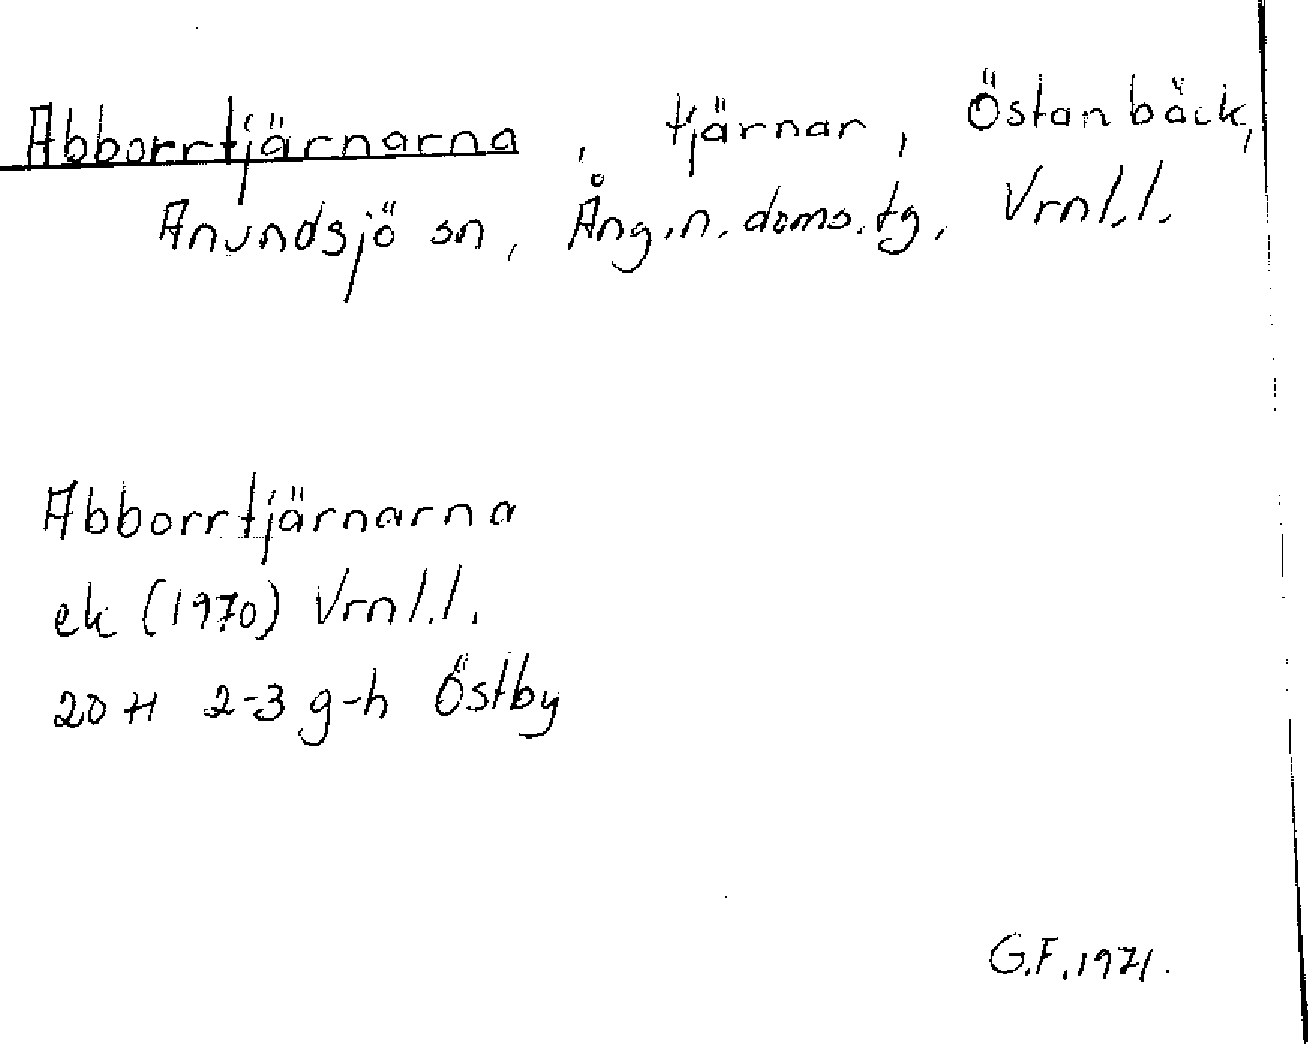 Abborrtjärnarna, tjärnar, Östanbäck,
Anundsjö sn, Ång.n.doms.tg, Vrnl.l.
Abborrtjärnarna
ek (1970) Vrnl.l.
20 H 2-3 g-h Östby
G.F.1971.